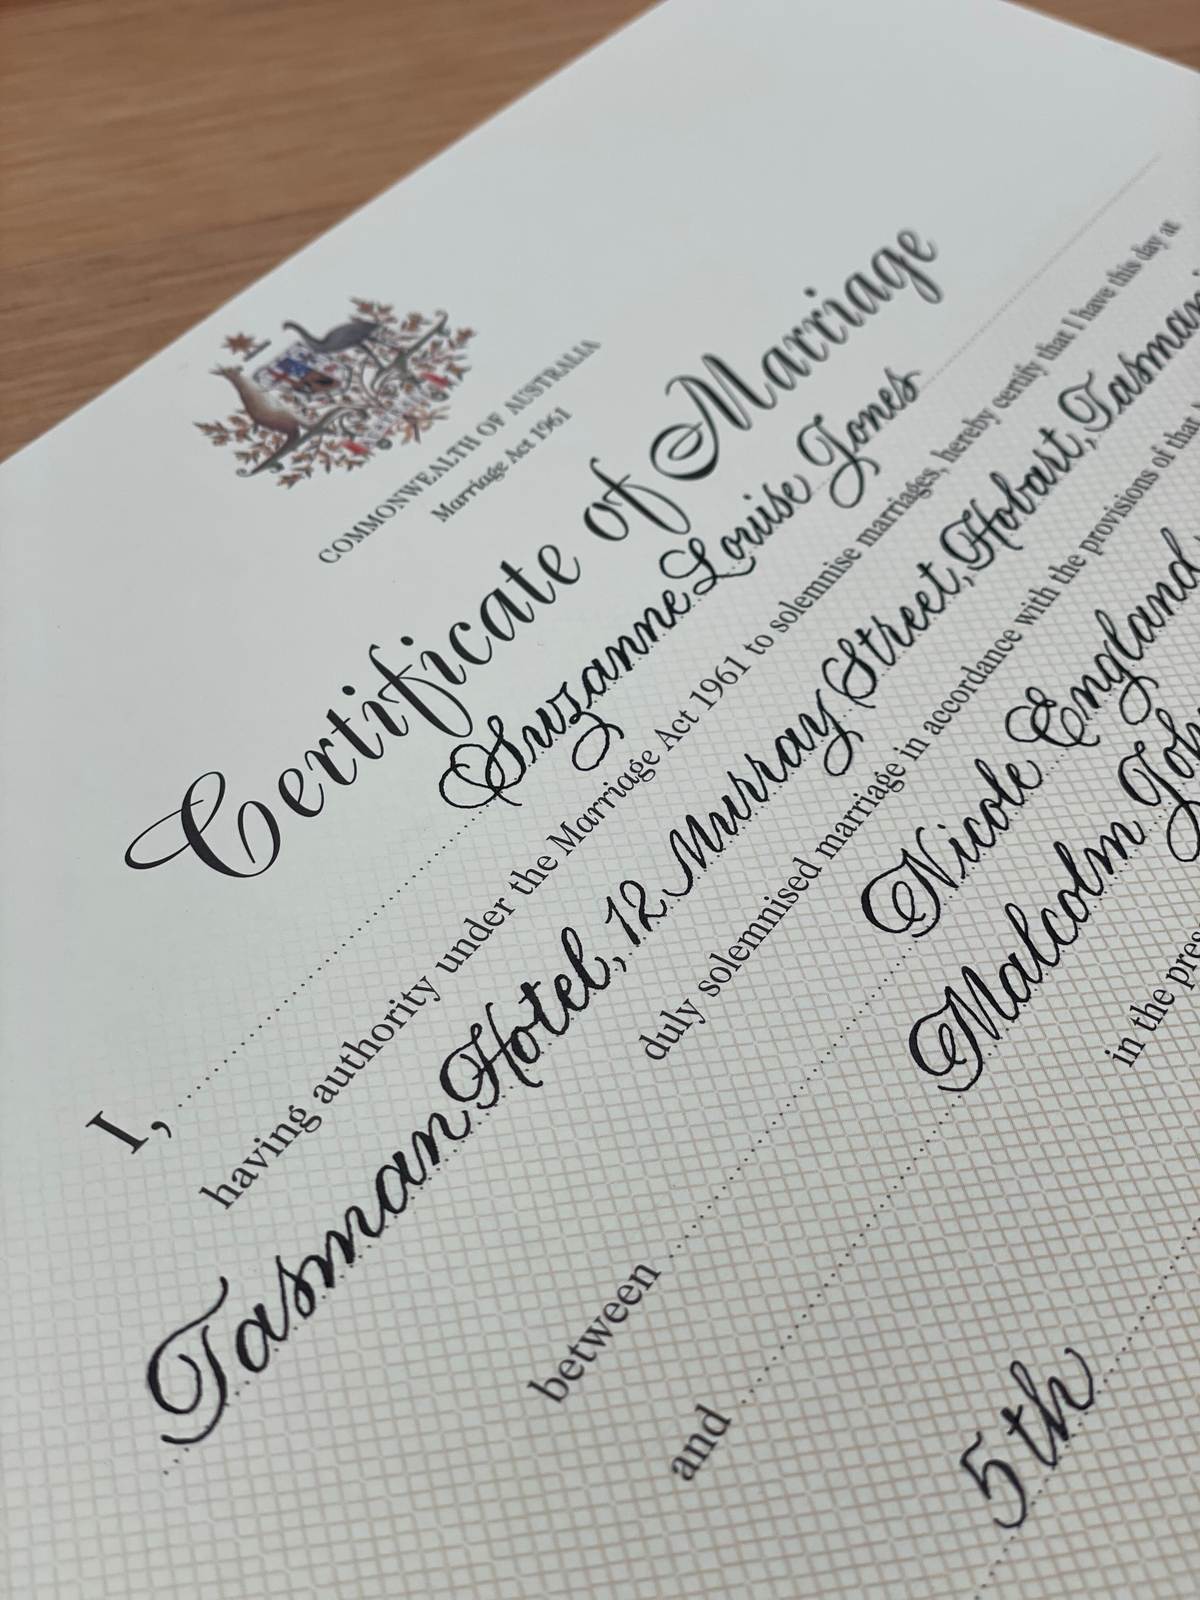 COMMONWEALTH OF AUSTRALIA
Marriage Act 1961
Certificate of Marriage
I, Suzanne Louise Jones
having authority under the Marriage Act 1961 to solemnise marriages, hereby certify that I have this day at
Tasman Hotel, 12 Murray Street, Hobart, Tasmani
duly solemnised marriage in accordance with the provisions of that
between Nicole England
and Malcolm Joh
in the pres
5th